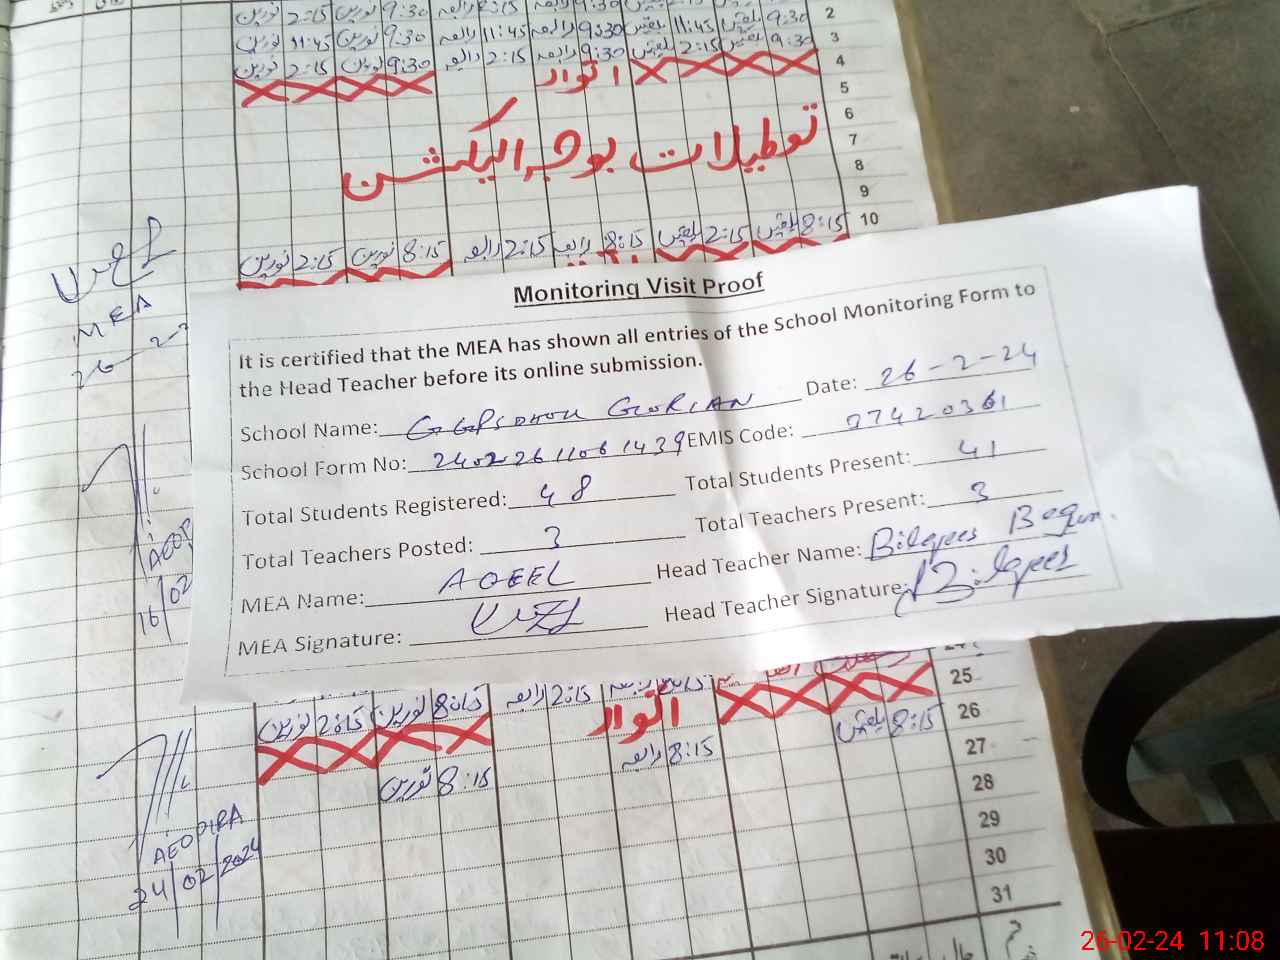 نورین 2:15 نورین 9:30 رابعہ 2:15 رابعہ 9:30 بلقیس 11:45 بلقیس 9:30 2
نورین 11:45 نورین 9:30 رابعہ 11:45 رابعہ 9:30 بلقیس 2:15 بلقیس 9:30 3
نورین 2:15 نورین 9:30 رابعہ 2:15 رابعہ 9:30 4
اتوار
5
6
توطیلات بوجہ الیکشن
7
8
9
نورین 2:15 نورین 8:15 رابعہ 2:15 رابعہ 8:15 بلقیس 2:15 بلقیس 8:15 10
MEA
26-2
Monitoring Visit Proof
It is certified that the MEA has shown all entries of the School Monitoring Form to
the Head Teacher before its online submission.
School Name: Date: 26-2-24
School Form No: 24022611061439 EMIS Code: 37420361
Total Students Registered: 48 Total Students Present: 41
Total Teachers Posted: 3 Total Teachers Present: 3
MEA Name: AQEEL Head Teacher Name: Bilqees Begum.
MEA Signature: Head Teacher Signature: Bilqees
16/02
25
نورین 2:15 نورین 8:15 رابعہ 2:15
اتوار
26
بلقیس 8:15
رابعہ 8:15
27
نورین 8:15
28
29
30
31
AEO PIRA
24/02/2024
26-02-24 11:08